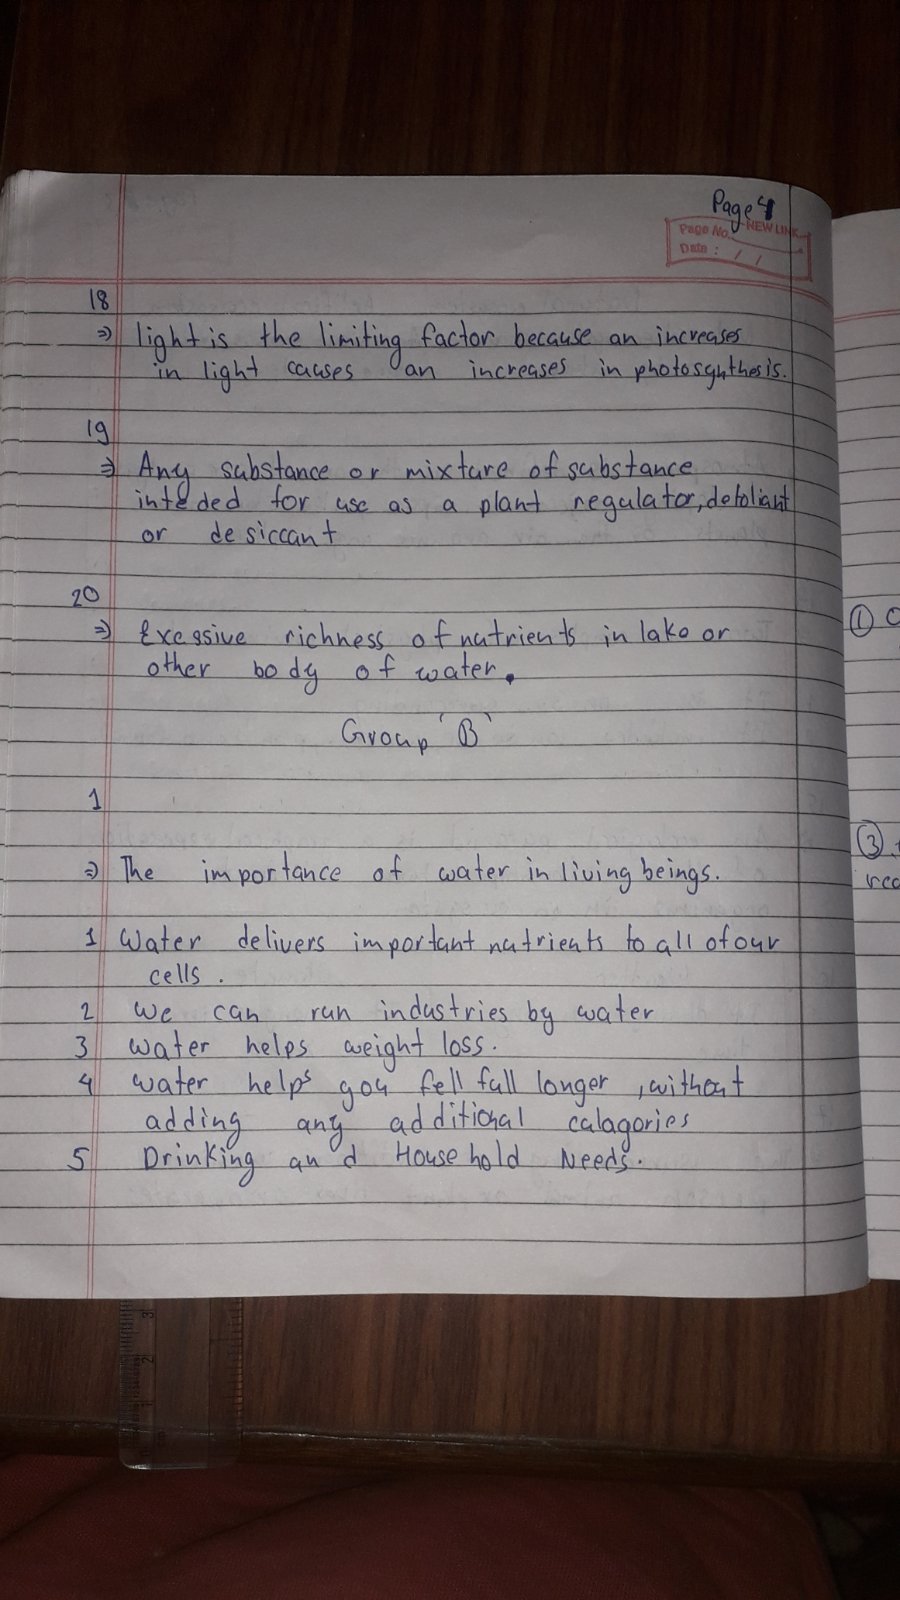 Page 4
NEW LINK
Page No.
Date : / /
18
⇒ light is the limiting factor because an increases
in light causes an increases in photosynthesis.
19
⇒ Any substance or mixture of substance
inteded for use as a plant regulator, defoliant
or desiccant
20
⇒ Exessive richness of nutrients in lake or
other body of water.
Group 'B'
1
⇒ The importance of water in living beings.
1 Water delivers important nutrients to all of our
cells.
2 We can run industries by water
3 water helps weight loss.
4 water helps you fell full longer, without
adding any additional calagories
5 Drinking and Household Needs.
① 
③